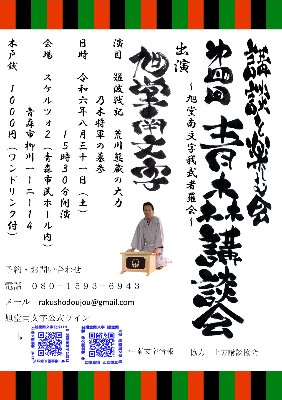 講談を楽しむ会
第四回 青森講談会
～旭堂南文字我武者羅会～
出演
旭堂南文字
演目 難波戦記 荒川熊蔵の大力
乃木将軍の墓参
日時 令和六年八月三十一日(土)
15時30分開演
会場 スケルツォ2(青森市民ホール内)
青森市柳川1-2-14
木戸銭 1000円(ワンドリンク付)
予約・お問い合わせ
電話 080-1593-6943
メール rakushodoujou@gmail.com
旭堂南文字公式ライン